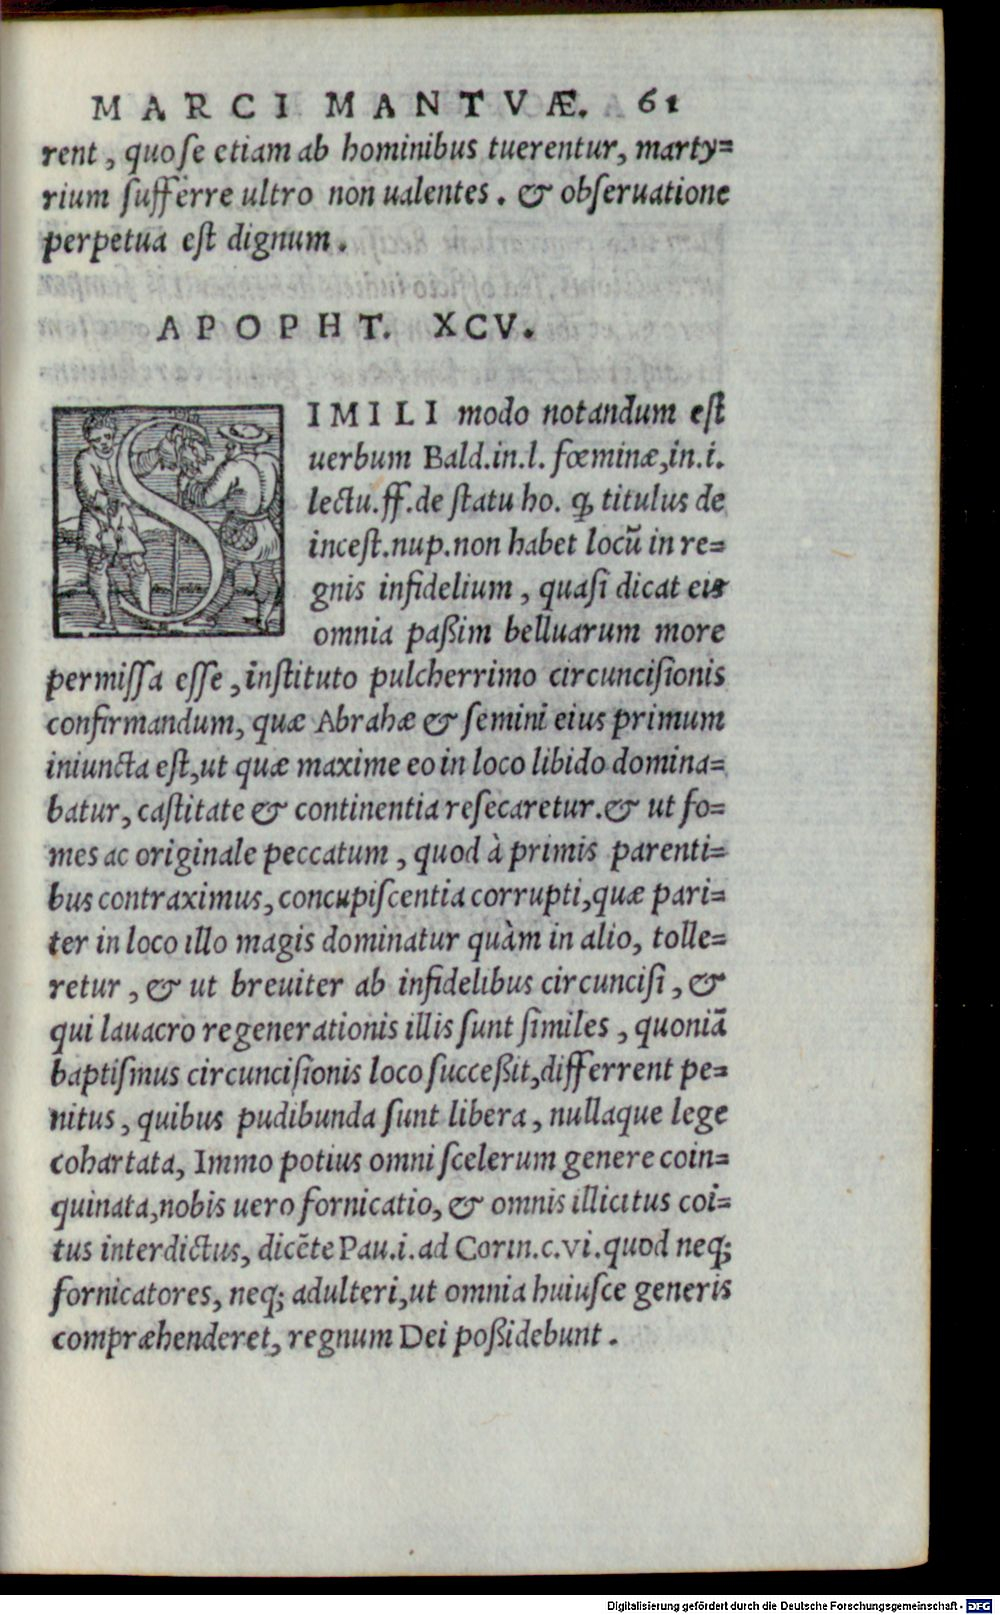 MARCI MANTVÆ. 61
rent, quo ſe etiam ab hominibus tuerentur, marty=
rium ſufferre ultro non ualentes. & obſeruatione
perpetua eſt dignum.
APOPHT. XCV.
SIMILI modo notandum eſt
uerbum Bald.in.l. fœminæ,in.i.
lectu.ff.de ſtatu ho. ꝙ titulus de
inceſt.nup.non habet locū in re=
gnis infidelium, quaſi dicat eis
omnia paßim belluarum more
permiſſa eſſe, inſtituto pulcherrimo circunciſionis
confirmandum, quæ Abrahæ & ſemini eius primum
iniuncta eſt,ut quæ maxime eo in loco libido domina=
batur, caſtitate & continentia reſecaretur.& ut fo=
mes ac originale peccatum, quod à primis parenti=
bus contraximus, concupiſcentia corrupti,quæ pari=
ter in loco illo magis dominatur quàm in alio, tolle=
retur, & ut breuiter ab infidelibus circunciſi, &
qui lauacro regenerationis illis ſunt ſimiles, quoniã
baptiſmus circunciſionis loco ſucceßit,differrent pe=
nitus, quibus pudibunda ſunt libera, nullaque lege
cohartata, Immo potius omni ſcelerum genere coin=
quinata,nobis uero fornicatio, & omnis illicitus coi=
tus interdictus, dicẽte Pau.i.ad Corin.c.vi.quod neq;
fornicatores, neq; adulteri,ut omnia huiuſce generis
compræhenderet, regnum Dei poßidebunt.
Digitalisierung gefördert durch die Deutsche Forschungsgemeinschaft - DFG